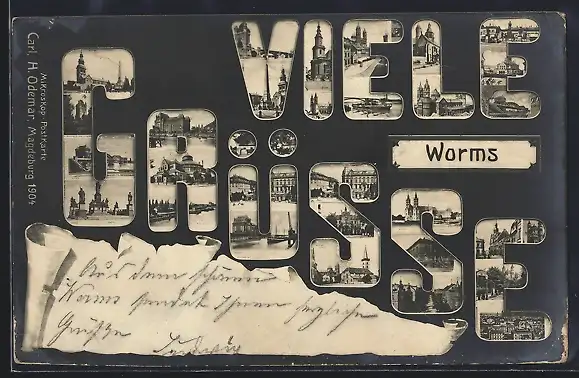 VIELE
GRÜSSE
Worms
M. Kroskop Postkarte
Carl. H. Odemar, Magdeburg 1904
Aus dem schönen
Worms sendet Ihnen herzliche
Grüße
Ludwig